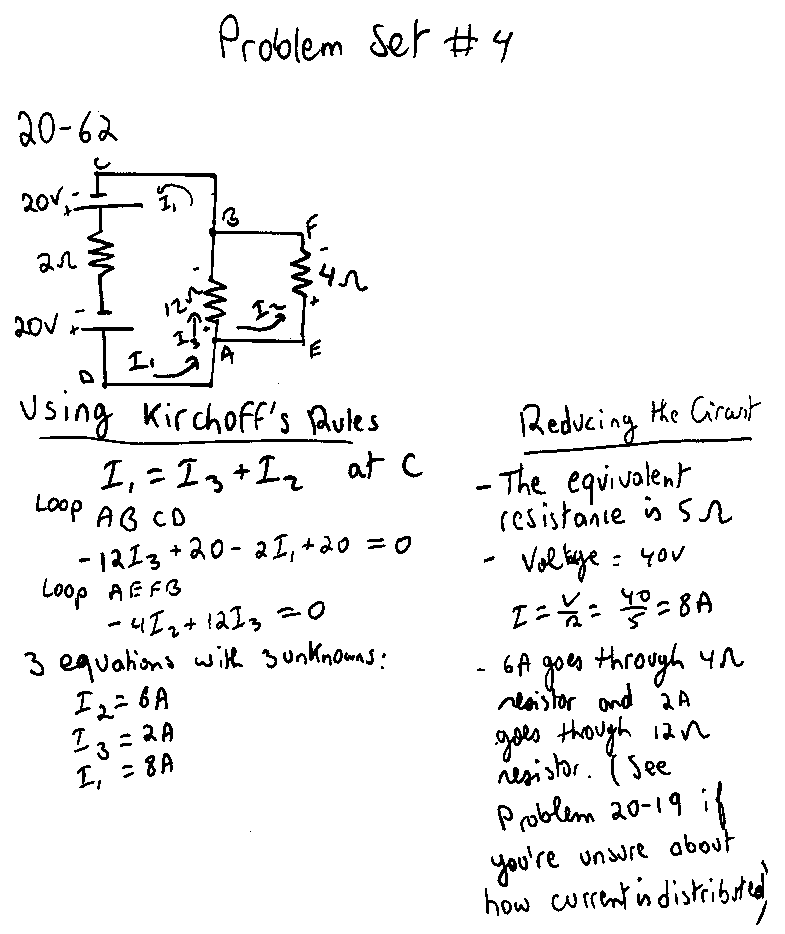 Problem Set # 4
20-62
C
20V - +
I₁
B
F
2Ω
-
-
4Ω
12Ω
+
20V - +
I₃
I₂
A
E
D
I₁
Using Kirchoff's Rules
I₁ = I₃ + I₂ at C
Loop ABCD
-12I₃ + 20 - 2I₁ + 20 = 0
Loop AEFB
-4I₂ + 12I₃ = 0
3 equations with 3 unknowns:
I₂ = 6A
I₃ = 2A
I₁ = 8A
Reducing the Circuit
- The equivalent
resistance is 5Ω
- Voltage = 40V
I = V/R = 40/5 = 8A
- 6A goes through 4Ω
resistor and 2A
goes though 12Ω
resistor. (See
Problem 20-19 if
you're unsure about
how current is distributed)